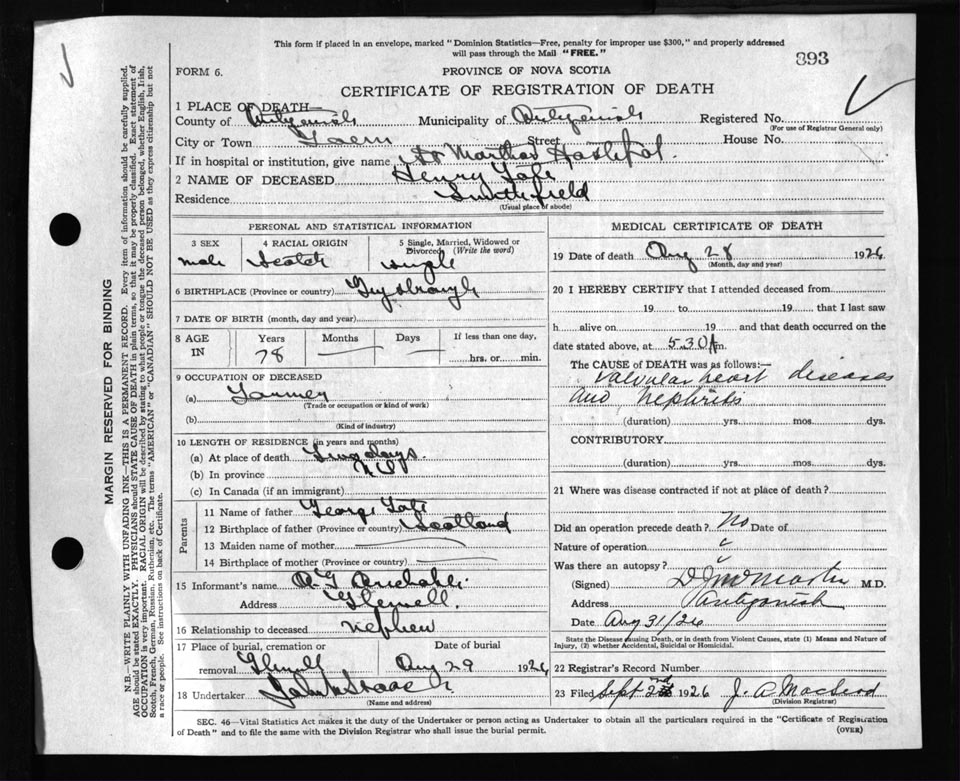 This form if placed in an envelope, marked "Dominion Statistics—Free, penalty for improper use $300," and properly addressed
will pass through the Mail "FREE."
893
FORM 6.
PROVINCE OF NOVA SCOTIA
CERTIFICATE OF REGISTRATION OF DEATH
1 PLACE OF DEATH—
County of Antigonish Municipality of Antigonish Registered No.
(For use of Registrar General only)
City or Town Town Street House No.
If in hospital or institution, give name St Marthas Hospital.
2 NAME OF DECEASED Henry
Residence Smithfield
(Usual place of abode)
PERSONAL AND STATISTICAL INFORMATION
3 SEX 4 RACIAL ORIGIN 5 Single, Married, Widowed or Divorced (Write the word)
male Scotch single
6 BIRTHPLACE (Province or country) Guysborough
7 DATE OF BIRTH (month, day and year)
8 AGE IN Years Months Days If less than one day,
78 hrs. or min.
9 OCCUPATION OF DECEASED
(a) Farmer
(Trade or occupation or kind of work)
(b)
(Kind of industry)
10 LENGTH OF RESIDENCE (in years and months)
(a) At place of death days.
(b) In province
(c) In Canada (if an immigrant)
Parents
11 Name of father George
12 Birthplace of father (Province or country) Scotland
13 Maiden name of mother
14 Birthplace of mother (Province or country)
15 Informant's name
Address
16 Relationship to deceased nephew
17 Place of burial, cremation or removal Date of burial
Aug 29 1926
18 Undertaker
(Name and address)
MEDICAL CERTIFICATE OF DEATH
19 Date of death Aug 28 1926
(Month, day and year)
20 I HEREBY CERTIFY that I attended deceased from
19 to 19 that I last saw
h alive on 19 and that death occurred on the
date stated above, at 5.30 A m.
The CAUSE OF DEATH was as follows:—
Valvular heart diseases
and nephritis
(duration) yrs. mos. dys.
CONTRIBUTORY
(duration) yrs. mos. dys.
21 Where was disease contracted if not at place of death?
Did an operation precede death? No Date of
Nature of operation
Was there an autopsy?
(Signed) M.D.
Address Antigonish
Date Aug 31/26
State the Disease causing Death, or in death from Violent Causes, state (1) Means and Nature of
Injury, (2) whether Accidental, Suicidal or Homicidal.
22 Registrar's Record Number
23 Filed Sept 2nd 1926 J. A MacLeod
(Division Registrar)
SEC. 46—Vital Statistics Act makes it the duty of the Undertaker or person acting as Undertaker to obtain all the particulars required in the "Certificate of Registration
of Death" and to file the same with the Division Registrar who shall issue the burial permit.
(OVER)
MARGIN RESERVED FOR BINDING
N.B.—WRITE PLAINLY WITH UNFADING INK—THIS IS A PERMANENT RECORD. Every item of information should be carefully supplied.
AGE should be stated EXACTLY. PHYSICIANS should STATE CAUSE OF DEATH in plain terms, so that it may be properly classified. Exact statement of
OCCUPATION is very important. RACIAL ORIGIN will be described by stating to what people or tongue the deceased person belonged, whether English, Irish,
Scotch, French, German, Russian, Ruthenian, etc. The terms "AMERICAN" or "CANADIAN" SHOULD NOT BE USED as they express citizenship but not
a race or people. See instructions on back of Certificate.